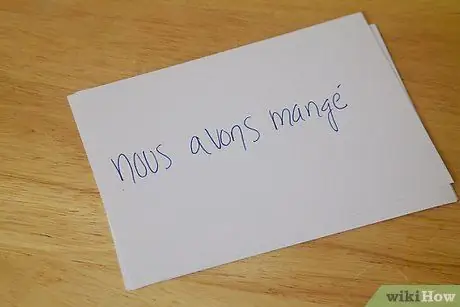 nous avons mangé
wikiHow